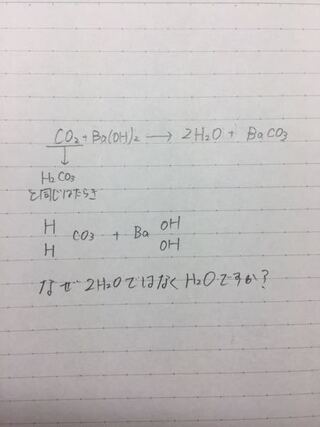 CO₂ + Ba(OH)₂ → 2H₂O + BaCO₃
↓
H₂CO₃
と同じはたらき
H CO₃ + Ba OH
H OH
なぜ 2H₂Oではなく H₂Oですか?